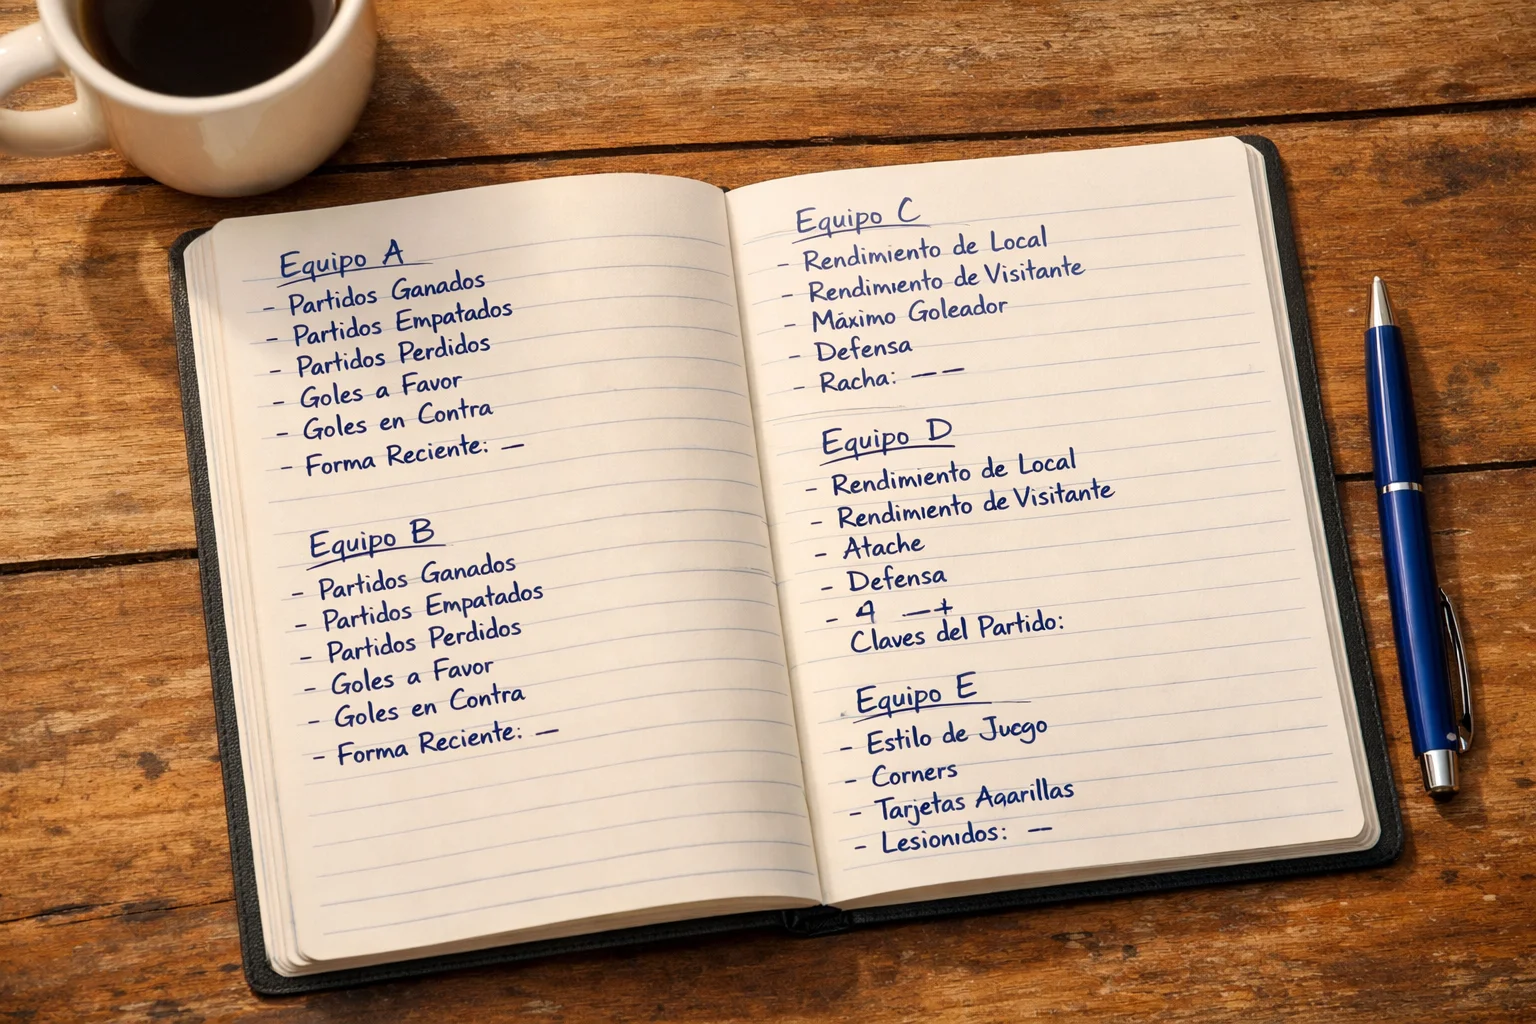 Equipo A
- Partidos Ganados
- Partidos Empatados
- Partidos Perdidos
- Goles a Favor
- Goles en Contra
- Forma Reciente: —
Equipo B
- Partidos Ganados
- Partidos Empatados
- Partidos Perdidos
- Goles a Favor
- Goles en Contra
- Forma Reciente: —
Equipo C
- Rendimiento de Local
- Rendimiento de Visitante
- Máximo Goleador
- Defensa
- Racha: — —
Equipo D
- Rendimiento de Local
- Rendimiento de Visitante
- Atache
- Defensa
- 4 —+
Claves del Partido:
Equipo E
- Estilo de Juego
- Corners
- Tarjetas Aqarillas
- Lesionidos: —